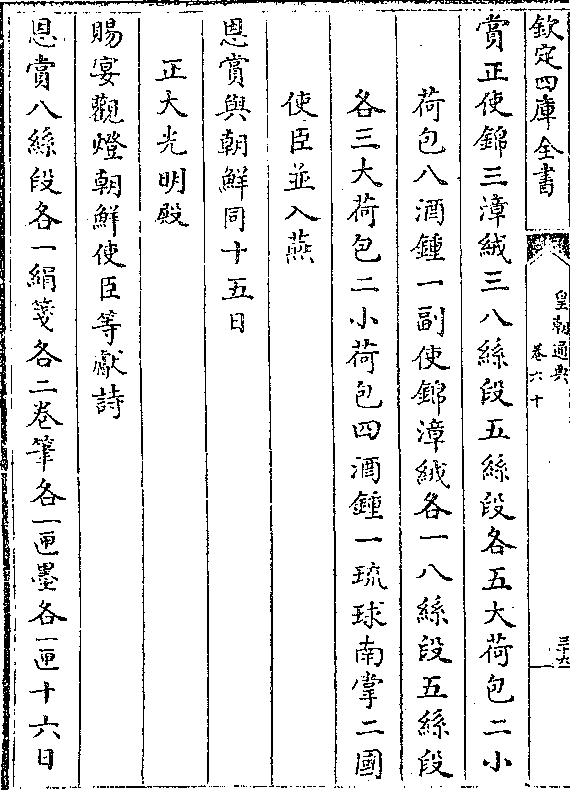 欽定四庫全書
皇朝通典
卷六十
三十九
賞正使錦三漳絨三八絲段五絲段各五大荷包二小
荷包八酒鍾一副使錦漳絨各一八絲段五絲段
各三大荷包二小荷包四酒鍾一琉球南掌二國
使臣並入燕
恩賞與朝鮮同十五日
正大光明殿
賜宴觀燈朝鮮使臣等獻詩
恩賞八絲段各一絹箋各二卷筆各一匣墨各一匣十六日